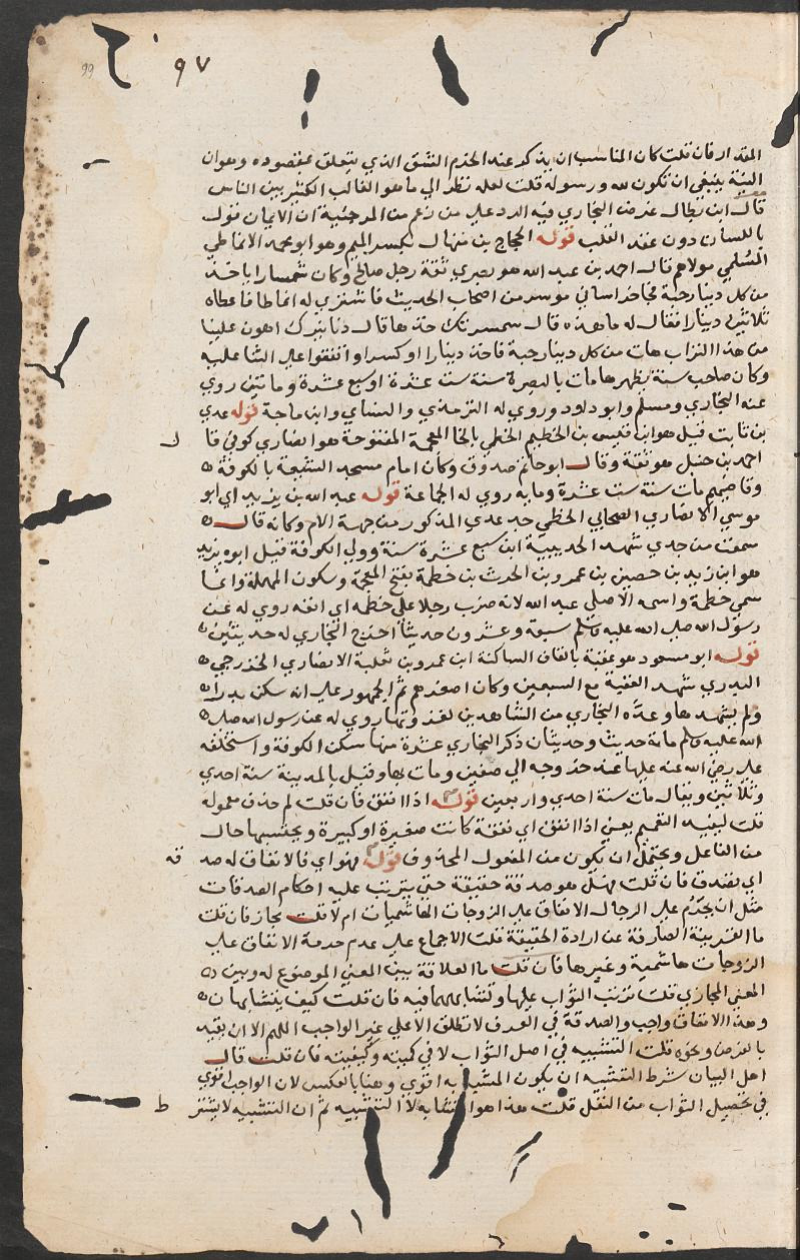 ٩٧
99
المقدار فان قلت كان المناسب ان يذكر عند الحزم الشق الذي يتعلق بمقصوده وهو ان
النية ينبغي ان تكون لله ورسوله قلت لعله نظر الي ما هو الغالب الكثير بين الناس
قال ابن بطال غرض البخاري فيه الرد علي من زعم من المرجئية ان الايمان قول
باللسان دون عقد القلب قوله الحجاج بن منهال بكسر الميم وهو ابو محمد الانماطي
السلمي مولاهم قال احمد بن عبد الله هو بصري ثقة رجل صالح وكان سمسارا ياخذ
من كل دينار حبة فجا خراساني موسر من اصحاب الحديث فاشتري له انماطا فاعطاه
ثلاثين دينارا فقال له ما هذه قال سمسرتك خذها قال دنانيرك اهون علينا
من هذا التراب هات من كل دينار حبة فاخذ دينارا وكسرا واتفقوا علي الثنا عليه
وكان صاحب سنة يظهرها مات بالبصرة سنة ست عشرة او سبع عشرة ومائتين روي
عنه البخاري ومسلم وابو داود وروي له الترمذي والنساي وابن ماجة قوله عدي
بن ثابت قيل هو ابن قيس بن الخطيم الخطمي بالخا المعجمة المفتوحة هو انصاري كوفي قا
ل
احمد بن حنبل هو ثقة وقال ابو حاتم صدوق وكان امام مسجد الشيعة بالكوفة
وقاضيهم مات سنة ست عشرة ومايه روي له الجماعة قوله عبد الله بن يزيد اي ابو
موسي الانصاري الصحابي الخطمي جد عدي المذكور من جهة الام وكانه قال
سمعت من جدي شهد الحديبية ابن سبع عشرة سنة وولي الكوفة قيل ابوه يزيد
هو ابن زيد بن حصين بن عمرو بن الحرث بن خطمة بفتح المعجمة وسكون المهملة وانما
سمي خطمة واسمه الاصلي عبد الله لانه ضرب رجلا علي خطمه اي انفه روي له عن
رسول الله صلي الله عليه وسلم سبعة وعشرون حديثا اخرج البخاري له حديثين
قوله ابو مسعود هو عقبة بالقاف الساكنة ابن عمرو بن ثعلبة الانصاري الخزرجي
البدري شهد العقبة مع السبعين وكان اصغرهم ثم الجمهور علي انه سكن بدرا
ولم يشهدها وعدّه البخاري من الشاهدين لغزوتها روي له عن رسول الله صلي
الله عليه وسلم مائة حديث وحديثان ذكر البخاري عشرة منها سكن الكوفة واستخلفه
علي رضي الله عنه عليها عند خروجه الي صفين ومات بها وقيل بالمدينة سنة احدي
وثلاثين ويقال مات سنة احدي واربعين قوله اذا انفق فان قلت لم حذف معموله
قلت ليفيد التعميم يعني اذا انفق اي نفقة كانت صغيرة او كبيرة ويحتسبها حال
من الفاعل ويحتمل ان يكون من المفعول المحذوف قوله فهو اي فالانفاق له صد
قه
اي تصدق فان قلت فهل هو صدقة حقيقة حتي يترتب عليه احكام الصدقات
مثل ان يحرم علي الرجال الانفاق علي الزوجات الهاشميات ام لا قلت مجاز فان قلت
ما القرينة الصارفة عن ارادة الحقيقة قلت الاجماع علي عدم حرمة الانفاق علي
الزوجات هاشمية وغيرها فان قلت ما العلاقة بين المعني الموضوع له وبين
المعني المجازي قلت ترتب الثواب عليها وتشابههما فيه فان قلت كيف يتشابهان
وهذا الانفاق واجب والصدقة في العرف لا تطلق الا علي غير الواجب اللهم الا ان يقيد
بالفرض ونحوه قلت التشبيه في اصل الثواب لا في كميته وكيفيته فان قلت قال
اهل البيان شرط التشبيه ان يكون المشبه به اقوي وهنا بالعكس لان الواجب اقوي
في تحصيل الثواب من النفل قلت هذا هو التشابه لا التشبيه ثم ان التشبيه لا يشتر
ط